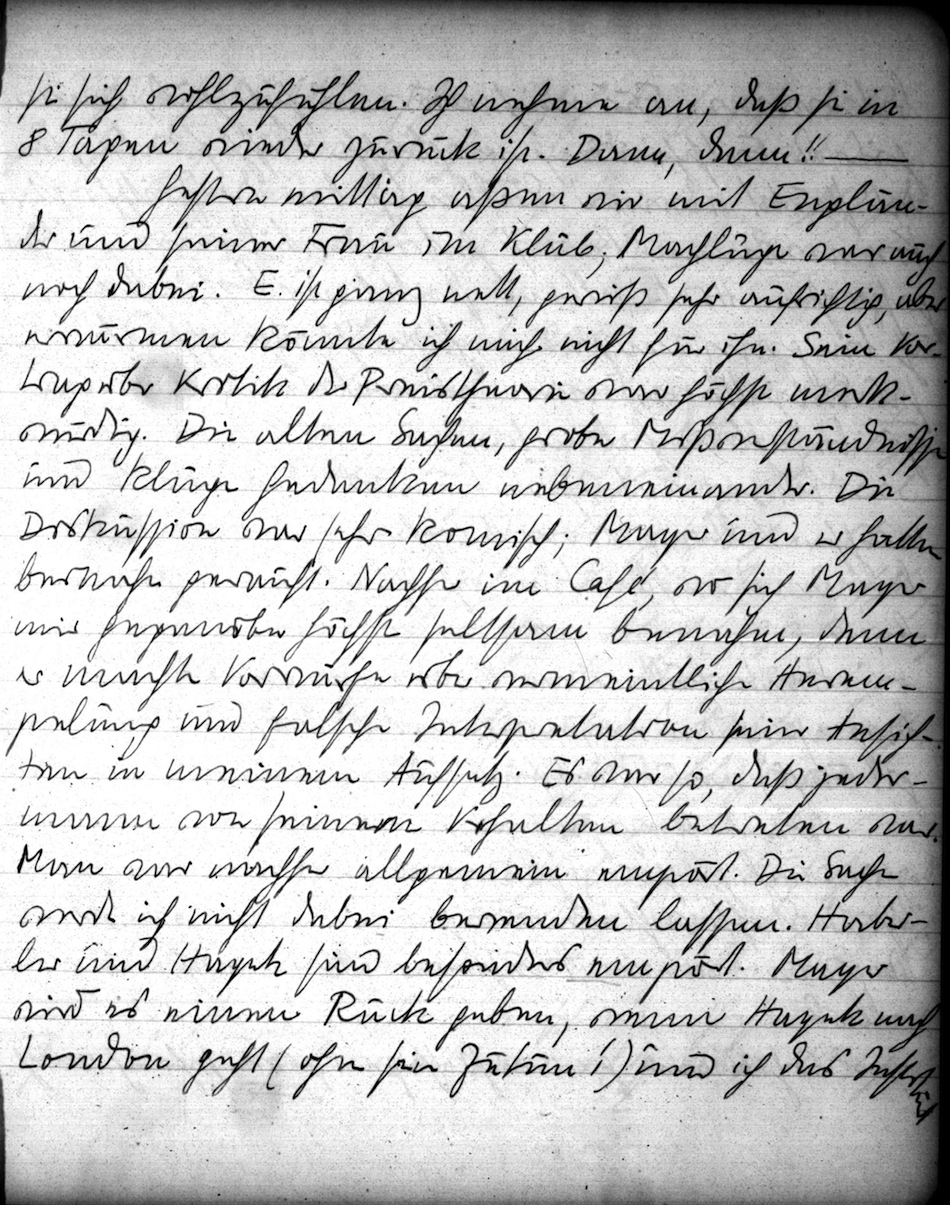 sie sich wohlzufühlen. Ich nehme an, daß sie in
8 Tagen wieder zurück ist. Dann, dann!! —
Gestern mittag aßen wir mit Englän-
der und seiner Frau im Klub; Machlup war auch
noch dabei. E. ist ganz nett, gewiß sehr aufrichtig, aber
erwärmen könnte ich mich nicht für ihn. Sein Vor-
trag über Kritik der Preistheorie war höchst merk-
würdig. Die alten Sachen, grobe Mißverständnisse
und kluge Gedanken nebeneinander. Die
Diskussion war sehr komisch; Mayer und er hatten
beinahe gerauft. Nachher im Café, wo sich Mayer
mir gegenüber höchst seltsam benahm, denn
er machte Vorwürfe über vermeintliche Herem-
pelung und falsche Interpretation seiner Ansich-
ten in meinem Aufsatz. Es war so, daß jeder-
mann von seinem Verhalten betreten war.
Man war nachher allgemein empört. Die Sache
werde ich nicht dabei bewenden lassen. Haber-
ler und Hayek sind besonders empört. Mayer
wird es einen Ruck geben, wenn Hayek nach
London geht (ohne sein Zutun!) und ich das Institut